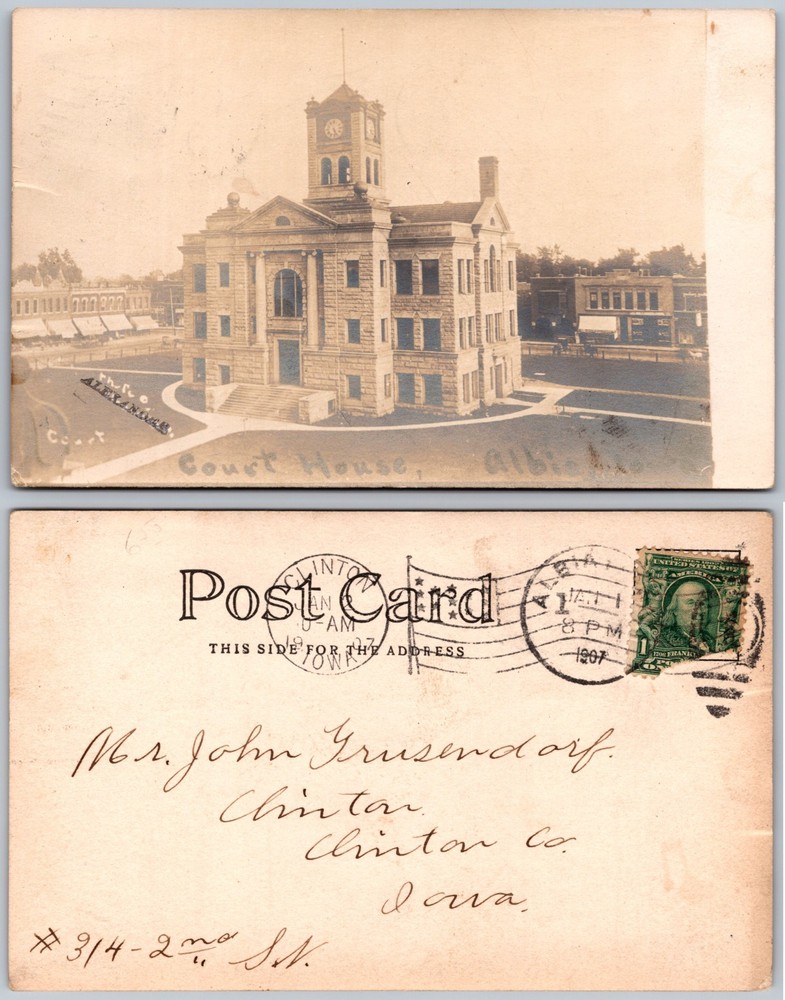 ALEXANDER.
Court
Court House, Albia, Iowa
Post Card
THIS SIDE FOR THE ADDRESS
CLINTON
JAN
-AM
1907
IOWA
ALBIA
JAN 1
8 PM
1907
SERIES 1902
UNITED STATES OF
AMERICA
1
FRANKLIN
Mr. John Grusendorf.
Clinton
Clinton Co.
Iowa.
# 314-2nd St.